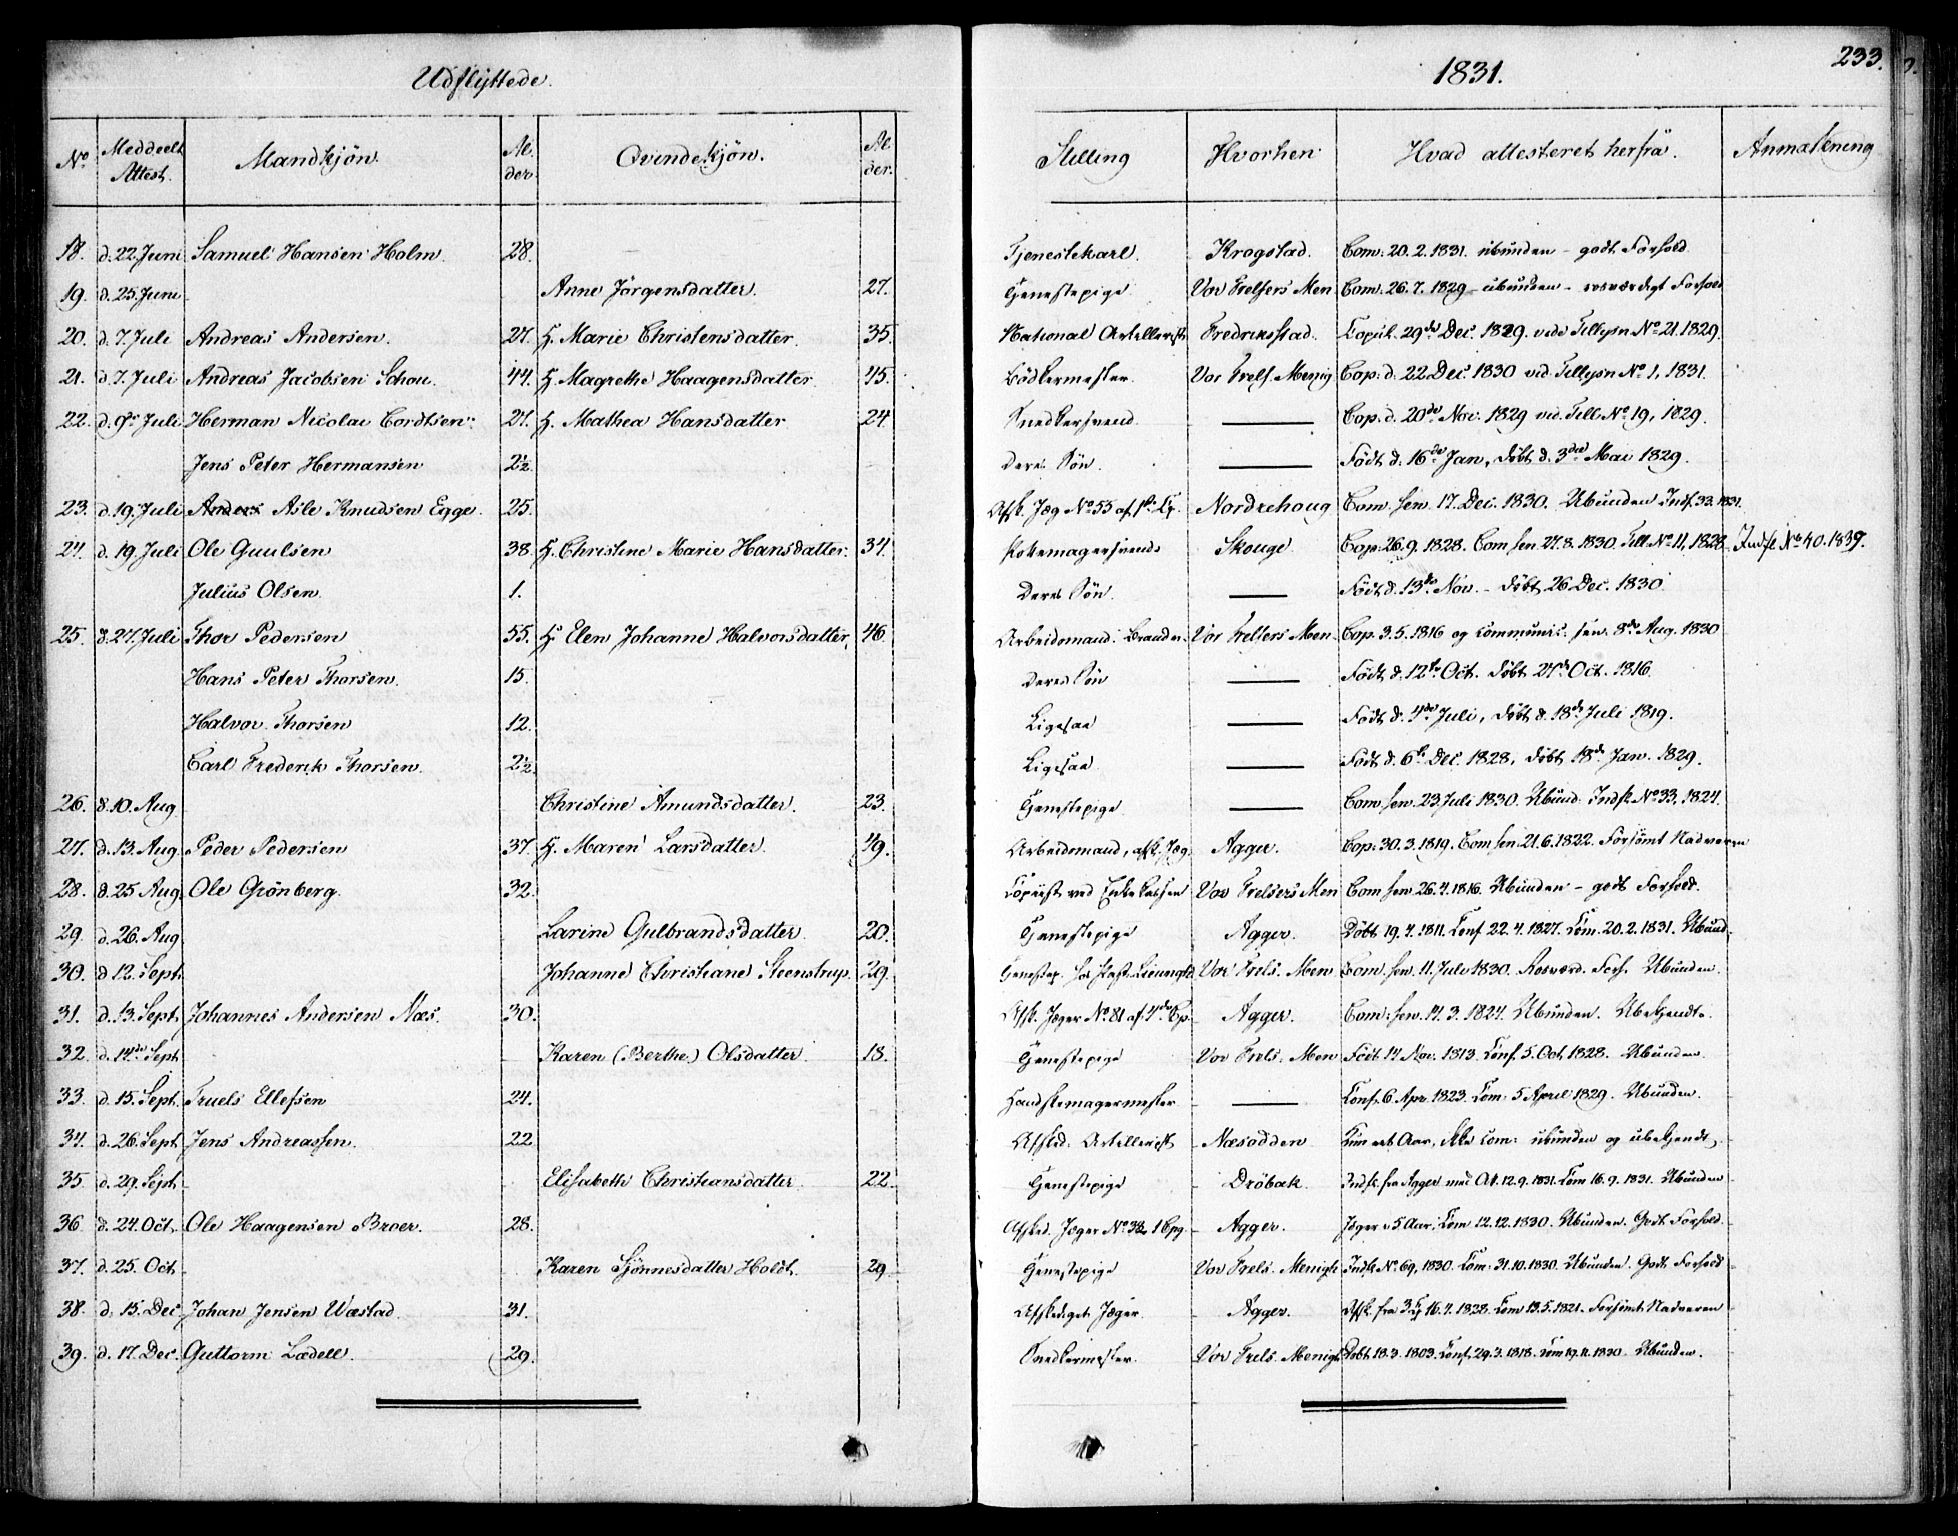 Udflyttede.
1831.
233.
No. Meddeelt Attest. Mandkjön. Alder Qvindekjön. Alder. Stilling Hvorhen Hvad attesteret herfra. Anmærkning
18. d. 22. Juni Samuel Hansen Holm. 28. Tjenestekarl. Krogstad. Com: 20. 2. 1831. ubunden - godt Forhold
19. d. 25. Juni Anne Jörgensdatter. 27. Tjenestepige Vor Frelsers Men Com. 26. 7. 1829 - ubunden - rosværdigt Forhold
20. d. 7. Juli Andreas Andersen. 27. H. Marie Christensdatter. 35. National Artellerist Fredriksstad. Copul. 29de Dec. 1829. vide Tillysn No. 21. 1829.
21. d. 7. Juli Andreas Jacobsen Schou. 44. H. Magrethe Haagensdatter. 45. Bödkermester. Vor Frels. Menig Cop: d. 22. Dec. 1830 vid. Tillysn No. 1, 1831.
22. d. 9de Juli Herman Nicolai Cordtsen. 27. H. Mathea Hansdatter 24. Snedkersvend. — Cop. d. 20de Nov. 1829 vid. Till. No. 19, 1829.
Jens Peter Hermansen 2½. Deres Sön. — Födt d. 16de Jan, döbt d. 3die Mai 1829.
23. d. 19. Juli Anders Asle Knudsen Egge. 25. Afsk. Jæg. No. 55 af 1ste Cp. Nordrehoug Com. sen. 17. Dec. 1830. Ubunden Indf. 33. 1831.
24. d. 19. Juli Ole Guulsen 38. H. Christine Marie Hansdatter. 34. Pottemagersvend Skouge Cop. 26. 9. 1828. Com sen 27. 8. 1830. Till. No. 11, 1828. Indfl. No. 40. 1839.
Julius Olsen. 1. Deres Sön. — Födt d. 13de Nov. - döbt 26 Dec. 1830
25. d. 27. Juli Thor Pedersen 55. H. Elen Johanne Halvorsdatter, 46. Arbeidsmand. Vor Frelsers Men. Cop. 3. 5. 1816 og communic. sen. 8de Aug. 1830
Hans Peter Thorsen. 15. Deres Sön — Födt d. 12te Oct. döbt 27de Oct. 1816.
Halvor Thorsen 12. Ligesaa — Födt d. 4de Juli, döbt d. 18de Juli 1819.
Carl Frederik Thorsen. 2½. Ligesaa — Födt d. 6te Dec. 1828, döbt 18de Jan. 1829.
26. d. 10. Aug Christine Amundsdatter. 23. Tjenestepige — Com sen. 23. Juli 1830. Ubund. Indfl. No. 33, 1824.
27. d. 13. Aug. Peder Pedersen 37. H. Maren Larsdatter. 49. Arbeidsmand, afsk. Jæg. Agger. Cop. 30. 3. 1819. Com sen. 21. 6. 1822. Forsömt Nadveren
28. d. 25 Aug. Ole Grönberg. 32. Copiist ved Vor Frelsers Men Com sen 26. 4. 1816. Ubunden - godt Forhold.
29. d. 26. Aug Larine Gulbrandsdatter. 20. Tjenestepige Agger. Döbt 19. 4. 1811. Conf. 22. 4. 1827. Com. 20. 2. 1831. Ubund.
30. d 12. Sept. Johanne Christiane Steenstrup. 29. Tjenestep. Vor Frels. Men Com. sen. 11. Juli 1830. Rosværd. Forh. Ubunden.
31. d. 13. Sept. Johannes Andersen Næs. 30. Afsk. Jæger No. 81 af 4de Cp. Agger. Com: sen. 14. 3. 1824. Ubunden. Ubekjendt.
32. d. 14de Sept Karen (Berthe) Olsdatter. 18. Tjenestepige Vor Frels. Men Födt 14 Nov. 1813. Conf. 5. Oct. 1828. Ubunden.
33. d. 15. Sept. Truels Ellefsen 24. Handskemagermester — Conf. 6. Apr. 1823. Com. 5 April 1829. Ubunden.
34. d. 26. Sept Jens Andreassen. 22 Afsked. Artellerist Næsodden Kun et Aar, ikke com: ubunden og ubekjendt.
35. d. 29. Sept Elisabeth Christiansdatter. 22. Tjenestepige Dröbak. Indfl. fra Agger med At. 12. 9. 1831. Com 16. 9. 1831. Ubunden
36. d. 24. Oct. Ole Haagensen Broer. 28. Afsked. Jæger No. 32 1 Cpg. Agger. Jæger i 5 Aar, Com 12. 12. 1830. Ubunden. Godt Forhold.
37. d. 25. Oct Karen Sjönnesdatter Holdt. 29. Tjenestepige Vor Frels. Menigh Indfl. No. 69, 1830. Com: 31. 10. 1830. Ubunden. Godt Forhold
38. d. 15. Dec. Johan Jensen Wæstad. 31. Afskediget Jæger. Agger. Afsk. fra 3 Cp 16. 4. 1828. Com 13. 5. 1821. Forsömt Nadveren
39. d. 17. Dec. Guttorm Lædell. 29. Snedkermester. Vor Frels. Menigh. Döbt 18. 3. 1803. Conf. 29. 3. 1818. Com 19. 11. 1830. Ubunden.